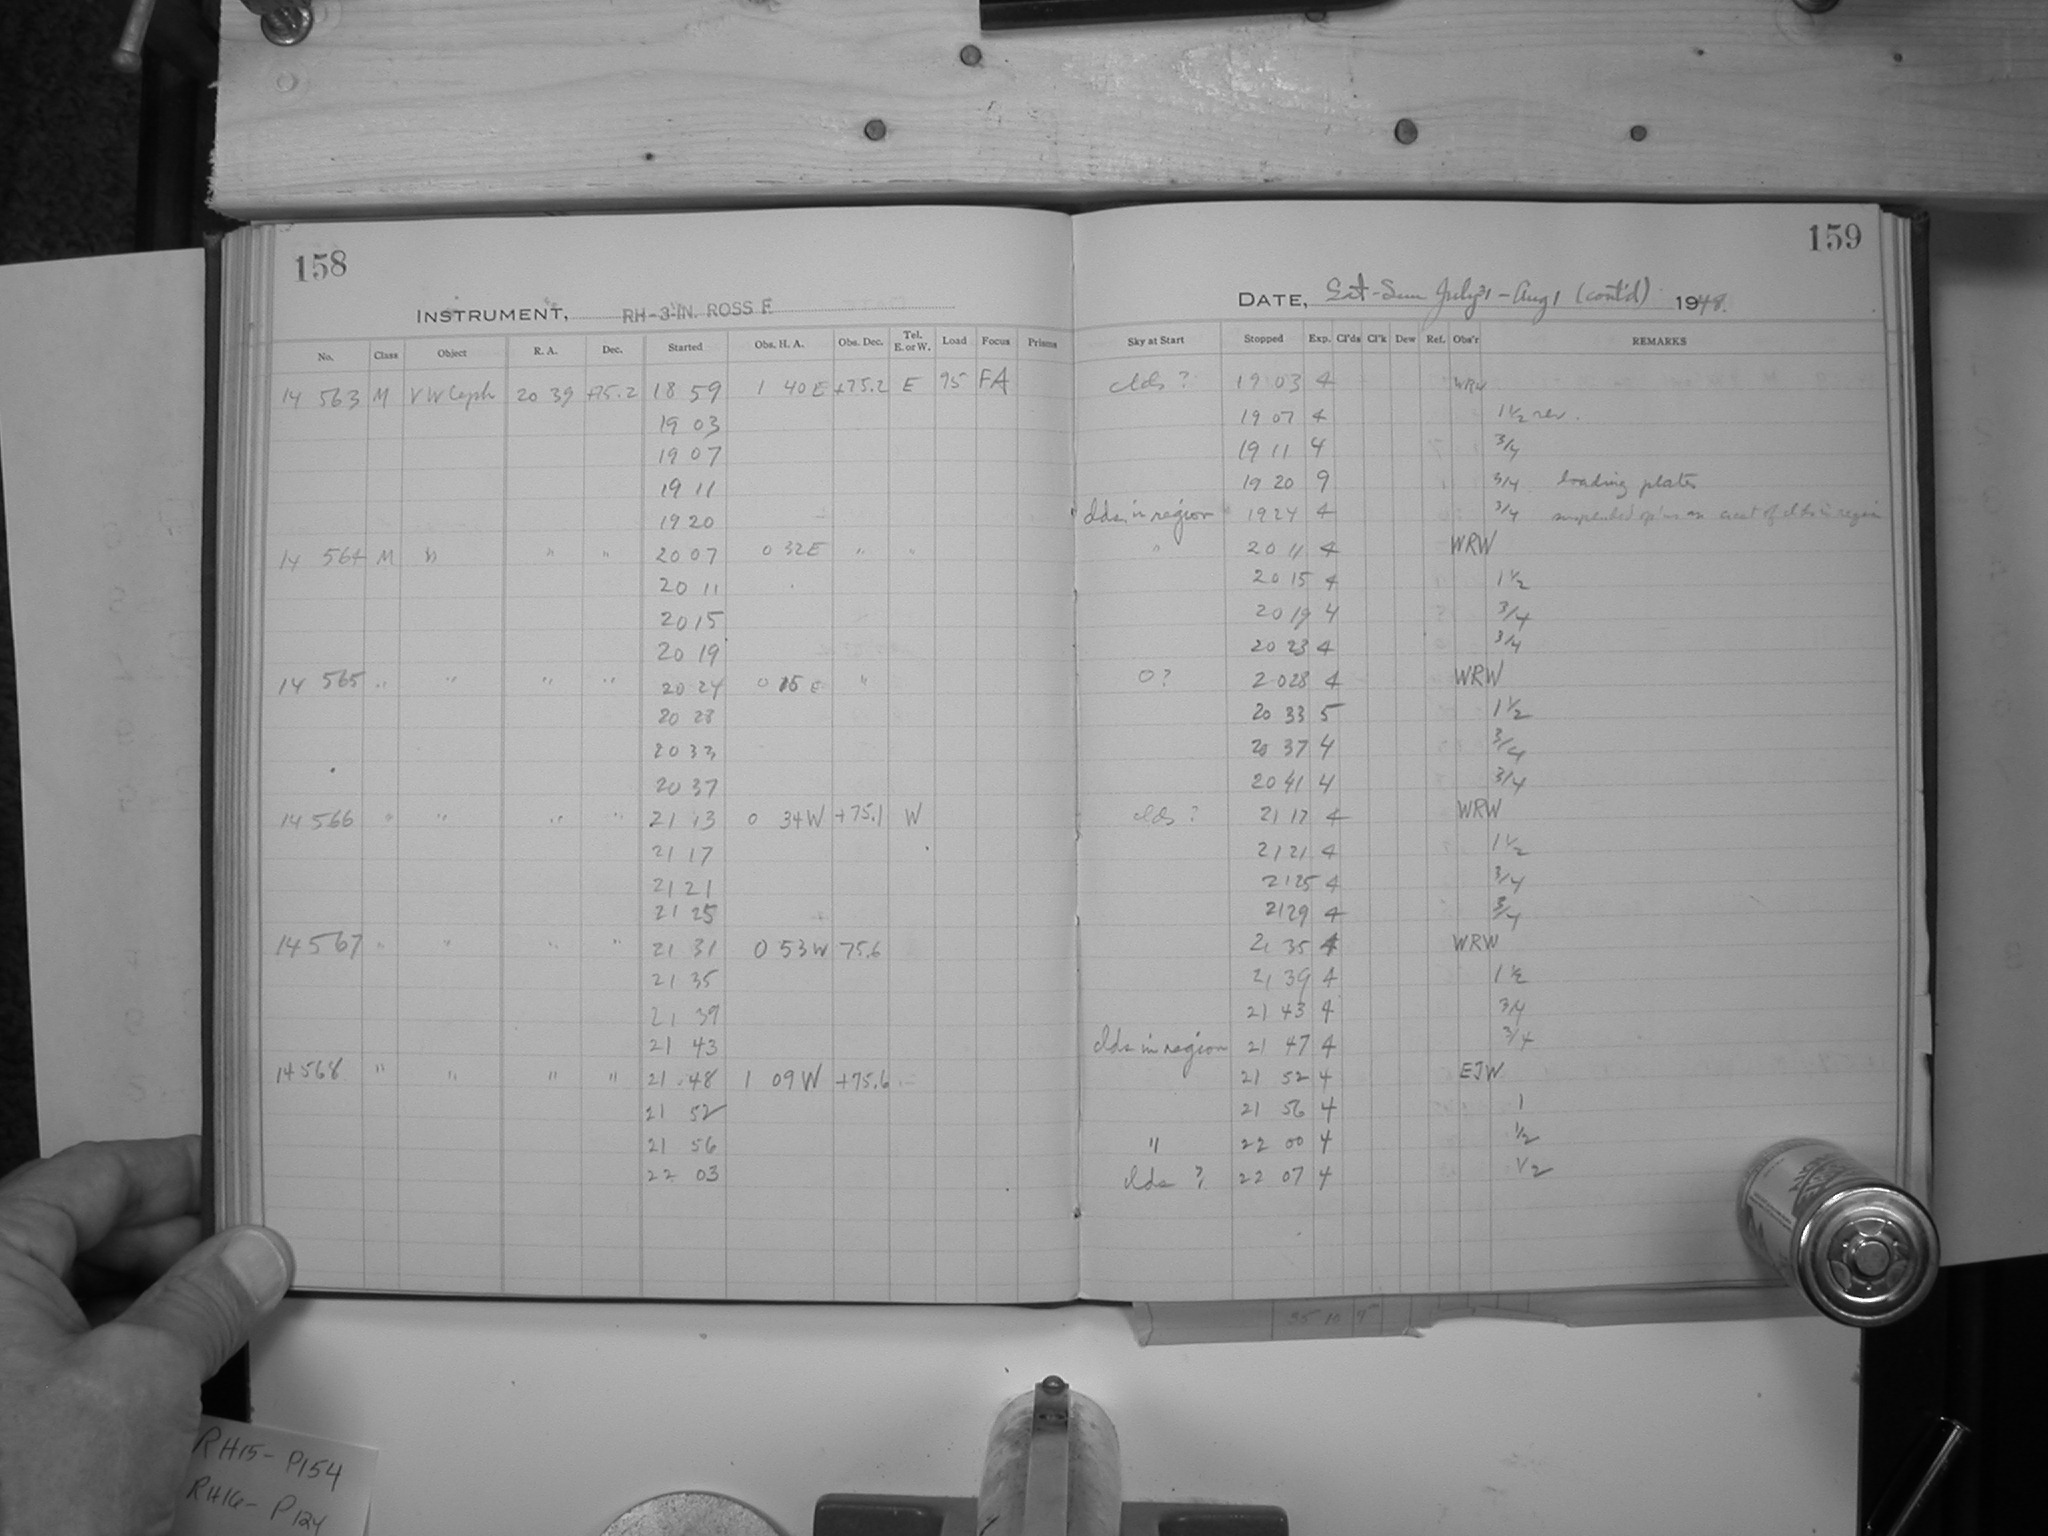 158
159
INSTRUMENT, RH-3-IN. ROSS F.
DATE, Sat-Sun July 31 - Aug 1 (cont'd) 1948.
No. Class Object R. A. Dec. Started Obs. H. A. Obs. Dec. Tel. E. or W. Load Focus Prisms Sky at Start Stopped Exp. Cl'ds Cl'k Dew Ref. Obs'r REMARKS
14 563 M VW Ceph 20 39 +75.2 18 59 1 40 E +75.2 E 95 FA clds ? 19 03 4 WRW
19 03 19 07 4 1 1/2 rev.
19 07 19 11 4 3/4
19 11 19 20 9 3/4 loading plates
19 20 clds in region 19 24 4 3/4 of clds in region
14 564 M " " " 20 07 0 32 E " " " 20 11 4 WRW
20 11 20 15 4 1 1/2
20 15 20 19 4 3/4
20 19 20 23 4 3/4
14 565 " " " " 20 24 0 15 E " 0? 20 28 4 WRW
20 28 20 33 5 1 1/2
20 33 20 37 4 3/4
20 37 20 41 4 3/4
14 566 " " " " 21 13 0 34 W +75.1 W clds ? 21 17 4 WRW
21 17 21 21 4 1 1/2
21 21 21 25 4 3/4
21 25 21 29 4 3/4
14 567 " " " " 21 31 0 53 W 75.6 21 35 4 WRW
21 35 21 39 4 1 1/2
21 39 21 43 4 3/4
21 43 clds in region 21 47 4 3/4
14 568 " " " " 21 48 1 09 W +75.6 21 52 4 EJW
21 52 21 56 4 1
21 56 " 22 00 4 1/2
22 03 clds ? 22 07 4 1/2
35 10 9
RH15- P154
RH16- P124